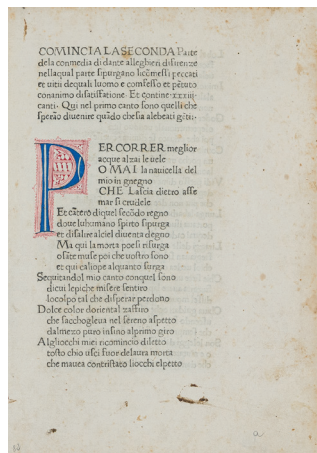 COMINCIA LA SECONDA Parte
dela conmedia di dante alleghieri difirenze
nellaqual parte sipurgano licōmessi peccati
et uitii dequali luomo e comfesso et pētuto
conanimo disatisfatione. Et contiene xxxiii
canti. Qui nel primo canto sono quelli che
sperāo diuenire quādo che sia alebeati gēti:
PER CORRER meglior
acque alzai le uele
O MAI la nauicella del
mio ingnegno
CHE Lascia dietro asse
mar si crudele
Et cātero diquel secōdo regno
doue luhumano spirto sipurga
et disalire alciel diuenta degno
Ma qui la morta poesi risurga
o sāte muse poi che uostro sono
et qui caliope alquanto surga
Seguitandol mio canto conquel sono
dicui lepiche misere sentiro
locolpo tal che disperar perdono
Dolce color doriental zaffiro
che saccoglieua nel sereno aspetto
dalmezo puro insino alprimo giro
Algliocchi miei ricomincio diletto
tosto chio usci fuor delaura morta
che mauea contristato liocchi elpetto